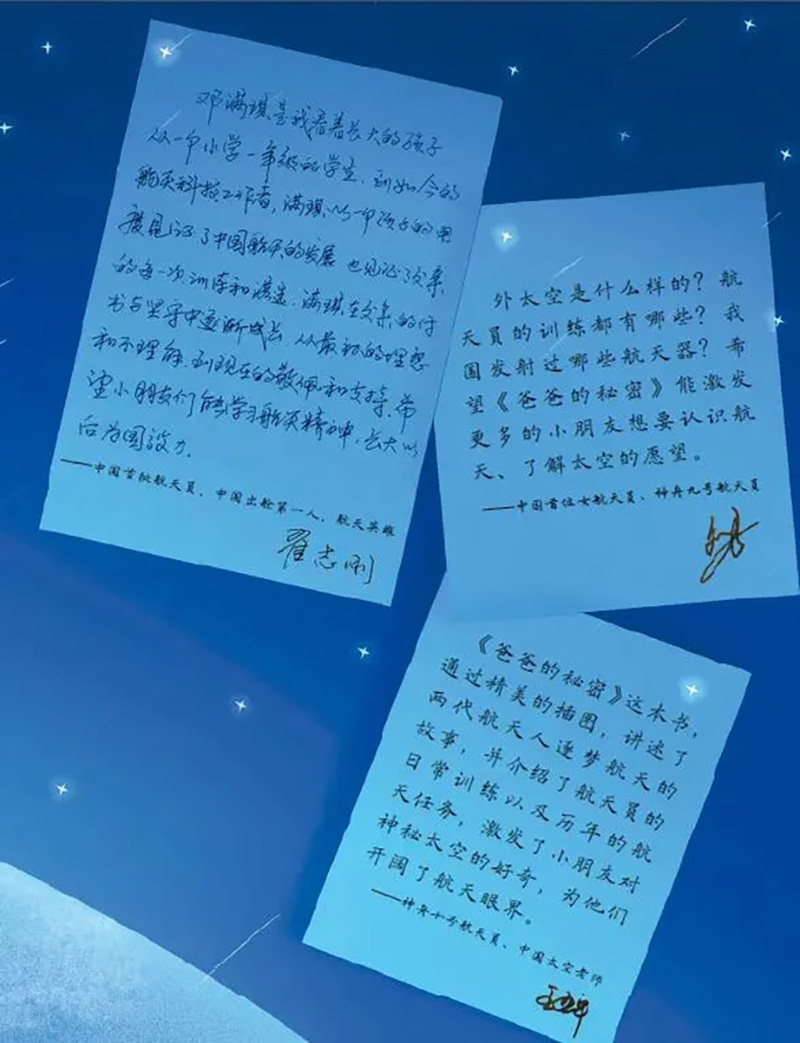 邓满琪是我看着长大的孩子
从一个小学一年级的学生，到如今的
航天科技工作者，满琪以一个的角
度见证了中国航天的发展 也见证了父亲
的每一次训练和选拔。满琪在父亲的付
出与坚守中逐渐成长 从最初的埋怨
和不理解，到现在的敬佩和支持。希
望小朋友们能学习航天精神，长大以
后为国效力.
——中国首批航天员，中国出舱第一人，航天英雄
翟志刚
外太空是什么样的？航
天員的训练都有哪些？我
国发射过哪些航天器？希
望《爸爸的秘密》能激发
更多的小朋友想要认识航
天、了解太空的愿望。
——中国首位女航天员、神舟九号航天员
《爸爸的秘密》这本书，
通过精美的插图，讲述了
两代航天人逐梦航天的
故事，并介绍了航天員的
日常训练以及历年的航
天任务，激发了小朋友对
神秘太空的好奇，为他们
开阔了航天眼界。
——神舟十号航天员、中国太空老师
王亚平